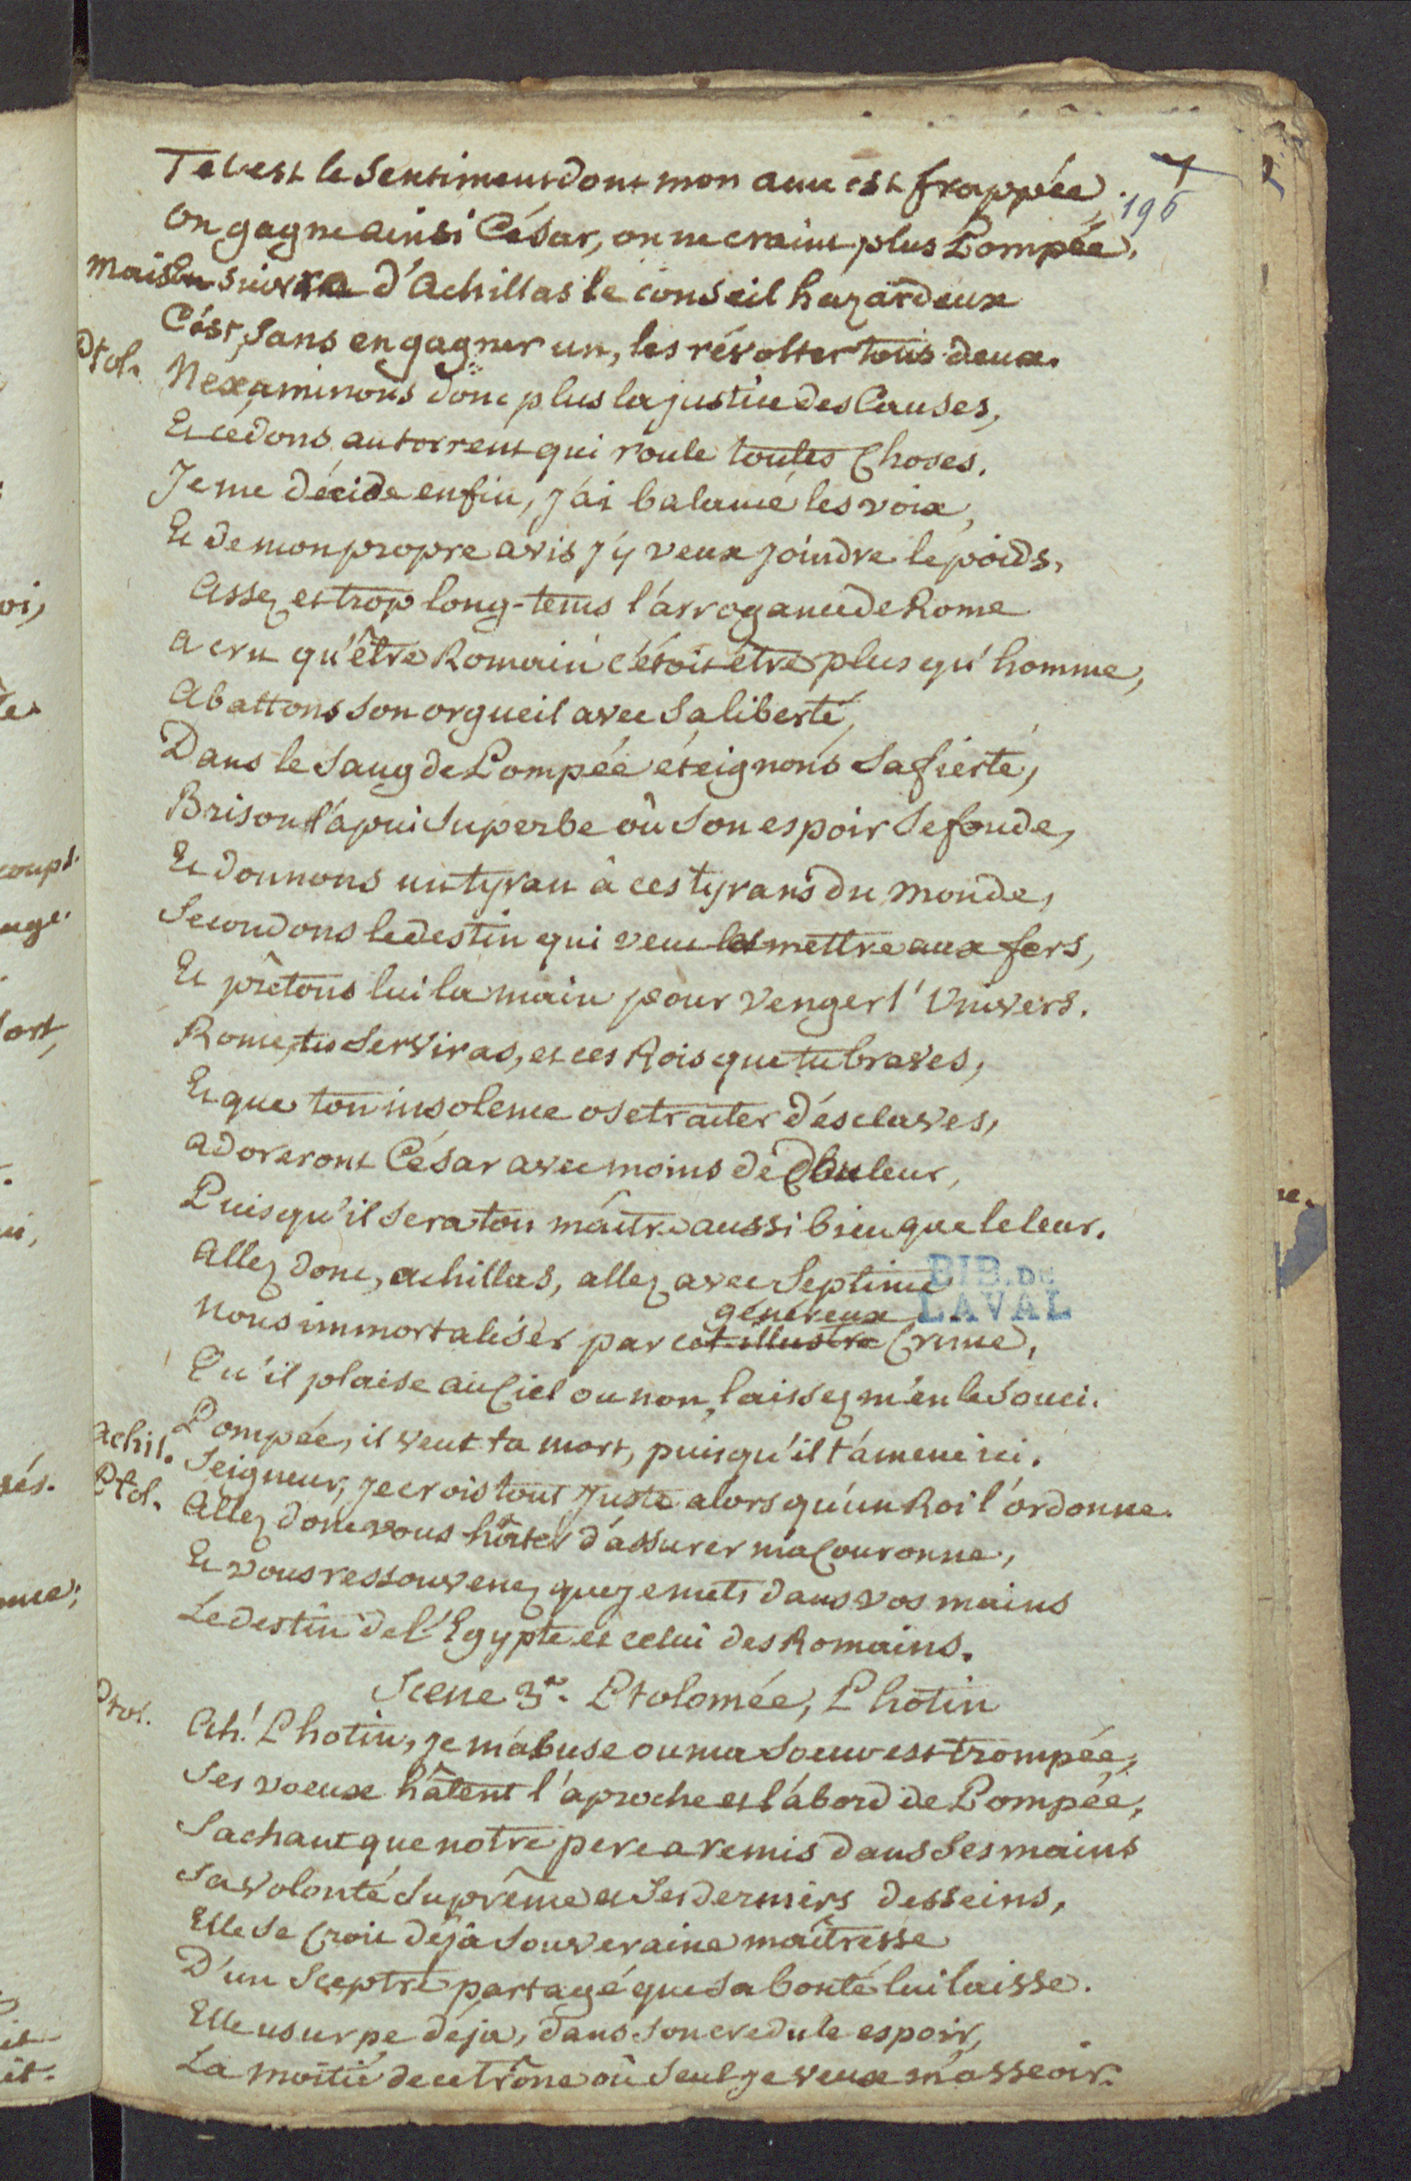 7
196
Tel est le Sentiment dont mon ame est frappée,
On gagne ainsi César, on ne craint plus Pompée,
mais suivre d'Achillas le conseil hazardeux
C'est, sans en gagner un, les révolter tous deux.
Ptol. N'examinons donc plus la justice des Causes,
Et cédons au torrent qui roule toutes Choses.
Je me décide enfin, j'ai balancé les voix,
Et de mon propre avis j'y veux joindre le poids,
Assez et trop long-tems l'arrogance de Rome
a cru qu'être Romain c'étoit être plus qu'homme,
Abattons son orgueil avec sa liberté,
Dans le Sang de Pompée éteignons sa fierté,
Brisons l'apui superbe où son espoir se fonde,
Et donnons un tyran à ces tyrans du monde,
Secondons le destin qui veut les mettre aux fers,
Et prêtons lui la main pour venger l'Univers.
Rome, tu serviras, et ces Rois que tu braves,
Et que ton insolence ose traiter d'esclaves,
adoreront César avec moins de douleur,
Puisqu'il sera ton maître aussi bien que le leur.
Allez donc, achillas, allez avec Septime
Nous immortaliser par cet illustre généreux Crime,
Qu'il plaise au Ciel ou non, laissez m'en le souci.
Pompée, il veut ta mort, puisqu'il t'amene ici.
Achil. Seigneur, je crois tout juste alors qu'un Roi l'ordonne.
Ptol. Allez donc vous hâter d'assurer ma Couronne,
Et vous ressouvenez que je mets dans vos mains
Le destin de l'Egypte et celui des Romains.
Scene 3e. Ptolomée, Photin
Ptol. Ah! Photin, je m'abuse ou ma soeur est trompée,
Ses voeux hâtent l'aproche et l'abord de Pompée,
Sachant que notre pere a remis dans ses mains
Sa volonté suprême et ses derniers desseins,
Elle se croit déjà souveraine maîtresse
D'un sceptre partagé que sa bonté lui laisse.
Elle usurpe déja, dans son credule espoir,
La moitié de ce trône où seul je veux m'asseoir.
BIB. DE
LAVAL